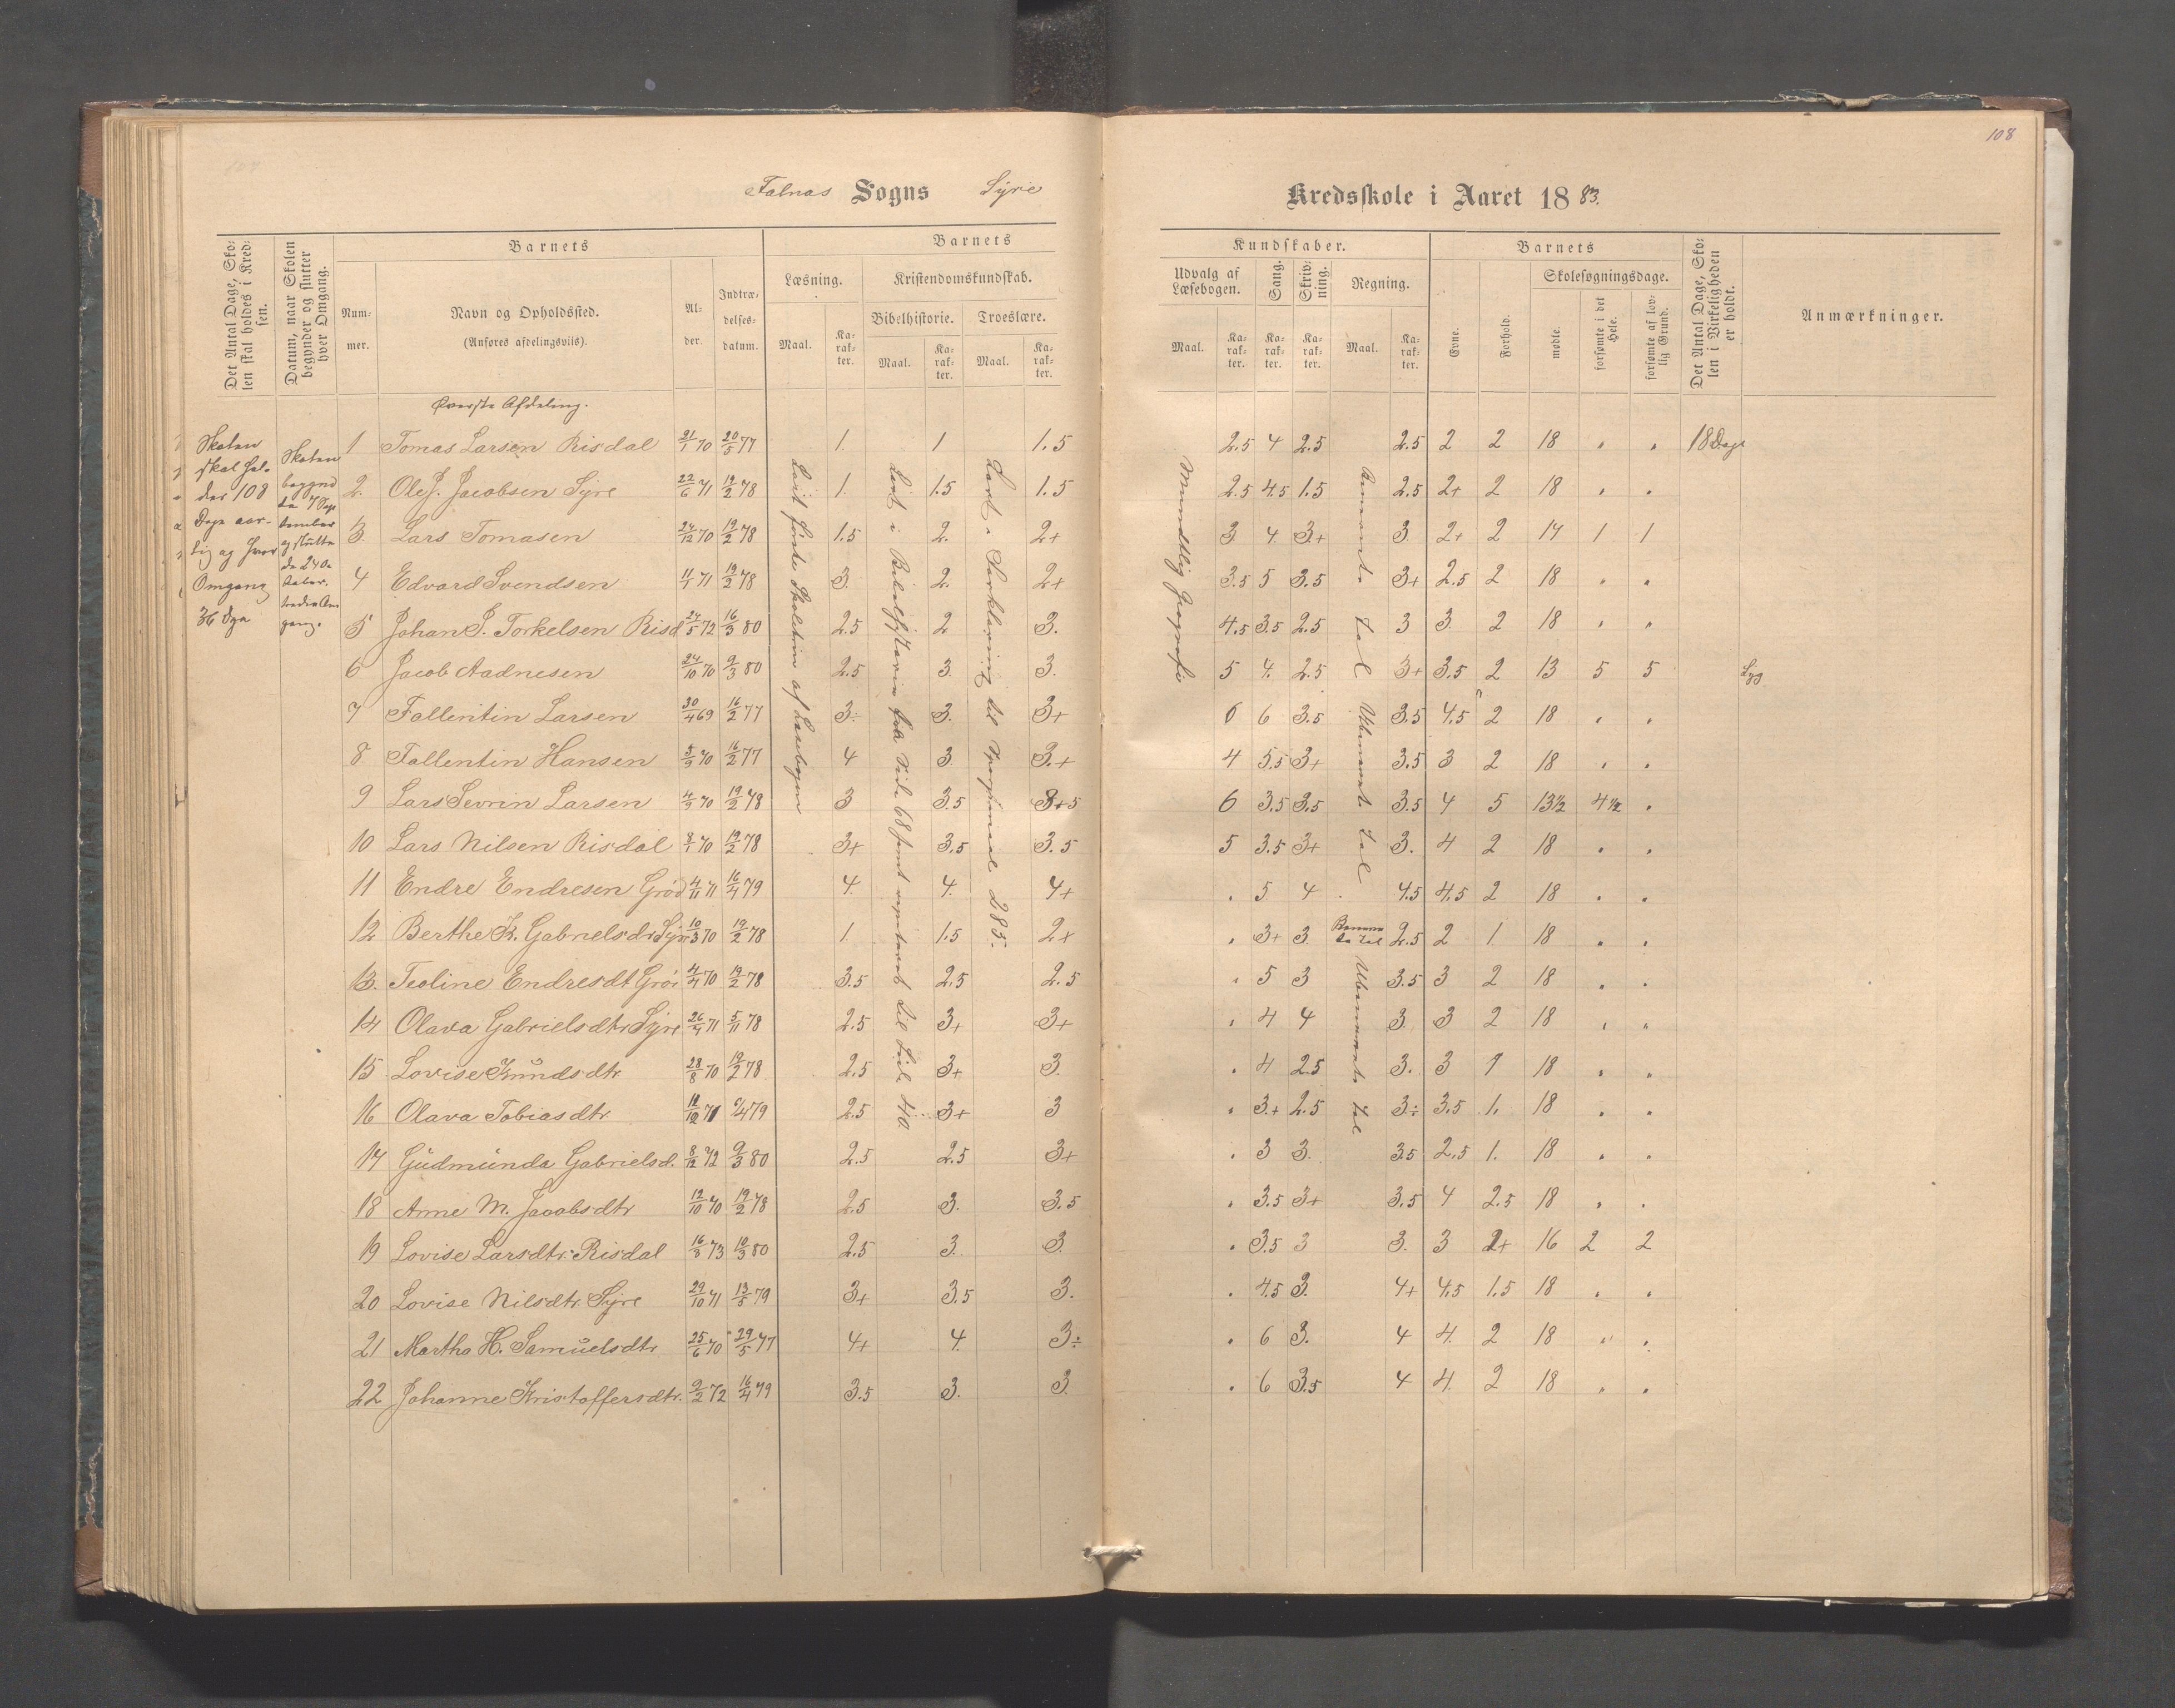 108
Falnas Sogns Syre Kredsskole i Aaret 1883.
Det Antal Dage, Skolen skal holdes i Kredsen.
Datum, naar Skolen begynder og slutter hver Omgang.
Barnets
Nummer.
Navn og Opholdssted.
(Anføres afdelingsviis).
Alder.
Indtrædelsesdatum.
Barnets
Læsning.
Maal.
Karakter.
Kristendomskundskab.
Bibelhistorie.
Maal.
Karakter.
Troeslære.
Maal.
Karakter.
Kundskaber.
Udvalg af Læsebogen.
Maal.
Karakter.
Sang.
Karakter.
Skrivning.
Karakter.
Regning.
Maal.
Karakter.
Barnets
Evne.
Forhold.
Skolesøgningsdage.
mødte.
forsømte i det Hele.
forsømte af lovlig Grund.
Det Antal Dage, Skolen i Virkeligheden er holdt.
Anmærkninger.
Øverste Afdeling.
Skolen
skal hol-
des 108
Dage aar-
lig og hver
Omgang
36 Dge
1 Tomas Larsen Risdal 21/1 70 20/5 77 1. 1 1.5 2.5 4 2.5 2.5 2 2 18 " " 18 Dage
2. Ole J. Jacobsen Syre 22/6 71 19/2 78 1. 1.5 1.5 2.5 4.5 1.5 2.5 2+ 2 18 " "
3. Lars Tomasen 24/12 70 19/2 78 1.5 2. 2+ 3 4. 3+ 3. 2+ 2 17 1 1
4 Edvard Svendsen 11/1 71 19/2 78 3. 2. 2+ 3.5 5 3.5 3+ 2.5 2 18 " "
5 Johan S. Torkelsen Risd 24/5 72 16/3 80 2.5 2 3. 4.5 3.5 2.5 3 3. 2 18 " "
6 Jacob Aadnesen 24/10 70 9/3 80 2.5 3. 3. 5 4. 2.5 3+ 3.5 2 13 5 5 Syg
7 Fallentin Larsen 30/4 69 16/2 77 3÷ 3. 3+ 6 6 3.5 3.5 4.5 2 18 " "
8 Fallentin Hansen 5/9 70 16/2 77 4 3. 3.+ 4 5.5 3+ 3.5 3 2 18 " "
9 Lars Sevrin Larsen 4/9 70 19/2 78 3 3.5 6 3.5 3.5 3.5 4 5 13½ 4½ "
10 Lars Nilsen Risdal 8/1 70 19/2 78 3+ 3.5 3.5 5 3.5 3+ 3. 4 2 18 " "
11 Endre Endresen Grød 4/11 71 16/4 79 4. 4. 4+ " 5 4 4.5 4.5 2 18 " "
12 Berthe K. Gabrielsdr Syre 10/3 70 19/2 78 1. 1.5 2+ " 3+ 3. 2.5 2 1 18 " "
13. Teoline Endresdt Grø 4/4 70 19/2 78 3.5 2.5 2.5 " 5 3 3.5 3 2 18 " "
14 Olava Gabrielsdtr Syre 26/4 71 5/11 78 2.5 3+ 3+ " 4 4 3. 3 2 18 " "
15 Lovise Knudsdtr 28/8 70 19/2 78 2.5 3+ 3. " 4 2.5 3. 3 1 18 " "
16 Olava Tobiasdtr 2.5 3+ 3 " 3.+ 2.5 3÷ 3.5 1. 18 " "
17 Gudmunda Gabrielsd. 8/12 72 9/3 80 2.5 2.5 3+ " 3 3. 3.5 2.5 1. 18 " "
18 Anne M. Jacobsdtr 12/10 70 19/2 78 2.5 3. 3.5 " 3.5 3+ 3.5 4 2.5 18 " "
19 Lovise Larsdtr. Risdal 16/3 73 10/3 80 2.5 3. 3. " 3.5 3 3. 3 16 2 2
20 Lovise Nilsdtr. Syre 29/10 71 13/5 79 3+ 3.5 3. " 4.5 3. 4+ 4.5 1.5 18 " "
21 Martha H. Samuelsdtr 25/6 70 29/5 77 4+ 4. 3÷ " 6 3. 4 4. 2 18 " "
22 Johanne Kristoffersdtr. 9/2 72 16/4 79 3.5 3. 3. " 6 3.5 4 4. 2 18 " "
Læst fjerde Skoletrin af Læsebogen
Læst i Bibelhistorie fra Side 68 samt repeteret til Side 40
Læst i Forklaring til Spørgsmaal 285.
Mundtlig Geografi
Benævnte tal Ubenævnte tal
Benævnte tal
Ubenævnte tal